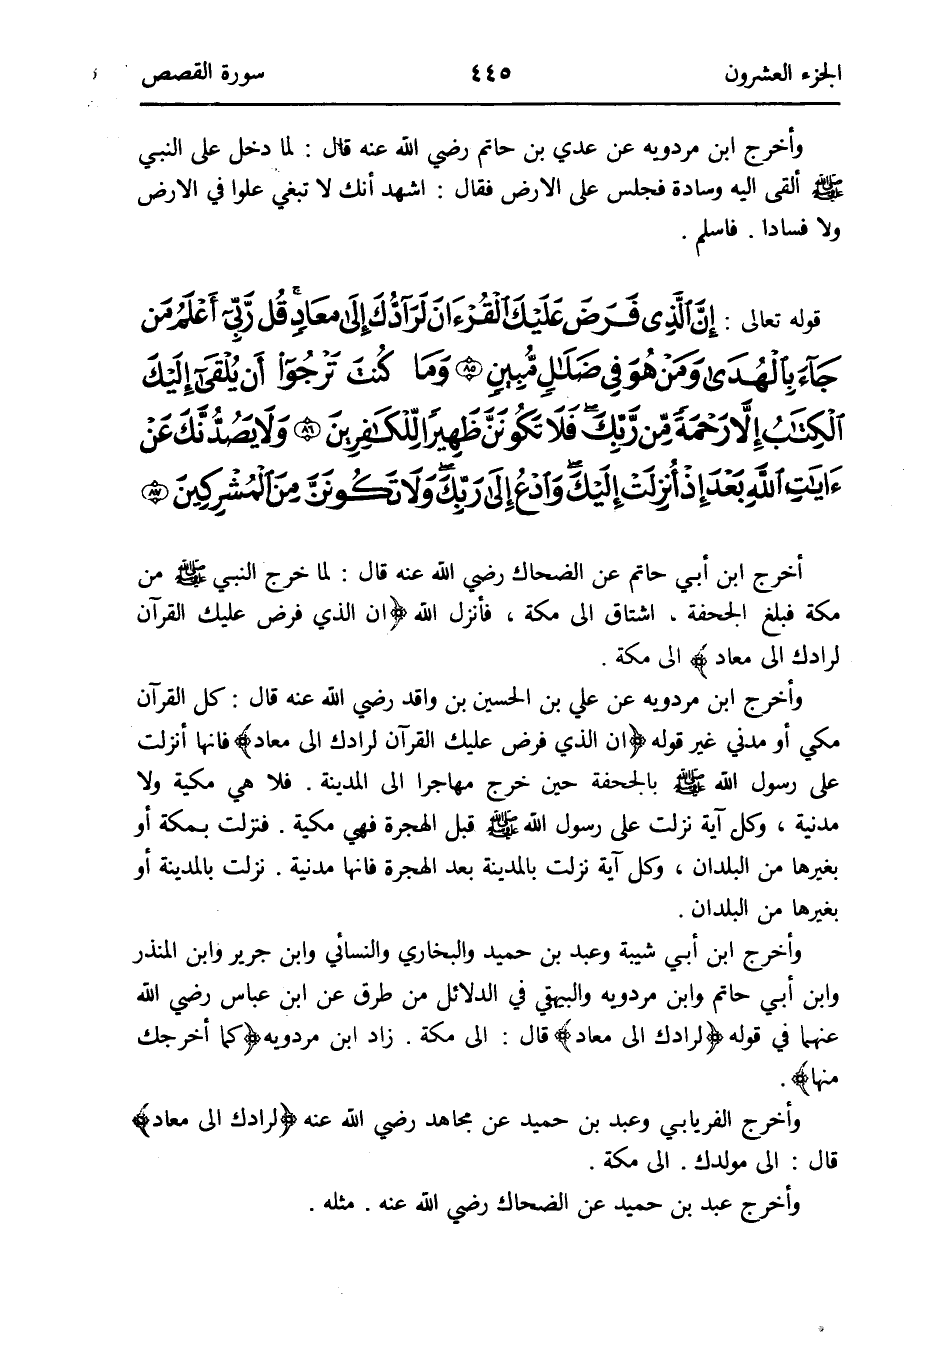 الجزء العشرون ٤٤٥ سورة القصص
وأخرج ابن مردويه عن عدي بن حاتم رضي الله عنه قال : لما دخل على النبي
ﷺ ألقى اليه وسادة فجلس على الارض فقال : اشهد أنك لا تبغي علوا في الارض
ولا فسادا . فاسلم .
قوله تعالى : إِنَّ ٱلَّذِى فَرَضَ عَلَيْكَ ٱلْقُرْءَانَ لَرَآدُّكَ إِلَىٰ مَعَادٍۚ قُل رَّبِّىٓ أَعْلَمُ مَن
جَآءَ بِٱلْهُدَىٰ وَمَنْ هُوَ فِى ضَلَٰلٍ مُّبِينٍ ﴿٨٥﴾ وَمَا كُنتَ تَرْجُوٓا۟ أَن يُلْقَىٰٓ إِلَيْكَ
ٱلْكِتَٰبُ إِلَّا رَحْمَةً مِّن رَّبِّكَۖ فَلَا تَكُونَنَّ ظَهِيرًا لِّلْكَٰفِرِينَ ﴿٨٦﴾ وَلَا يَصُدُّنَّكَ عَنْ
ءَايَٰتِ ٱللَّهِ بَعْدَ إِذْ أُنزِلَتْ إِلَيْكَۖ وَٱدْعُ إِلَىٰ رَبِّكَۖ وَلَا تَكُونَنَّ مِنَ ٱلْمُشْرِكِينَ ﴿٨٧﴾
أخرج ابن أبي حاتم عن الضحاك رضي الله عنه قال : لما خرج النبي ﷺ من
مكة فبلغ الجحفة ، اشتاق الى مكة ، فأنزل الله ﴿ان الذي فرض عليك القرآن
لرادك الى معاد﴾ الى مكة .
وأخرج ابن مردويه عن علي بن الحسين بن واقد رضي الله عنه قال : كل القرآن
مكي أو مدني غير قوله ﴿ان الذي فرض عليك القرآن لرادك الى معاد﴾ فانها أنزلت
على رسول الله ﷺ بالجحفة حين خرج مهاجرا الى المدينة . فلا هي مكية ولا
مدنية ، وكل آية نزلت على رسول الله ﷺ قبل الهجرة فهي مكية . فنزلت بمكة أو
بغيرها من البلدان ، وكل آية نزلت بالمدينة بعد الهجرة فانها مدنية . نزلت بالمدينة أو
بغيرها من البلدان .
وأخرج ابن أبي شيبة وعبد بن حميد والبخاري والنسائي وابن جرير وابن المنذر
وابن أبي حاتم وابن مردويه والبيهقي في الدلائل من طرق عن ابن عباس رضي الله
عنهما في قوله ﴿لرادك الى معاد﴾ قال : الى مكة . زاد ابن مردويه ﴿كما أخرجك
منها﴾ .
وأخرج الفريابي وعبد بن حميد عن مجاهد رضي الله عنه ﴿لرادك الى معاد﴾
قال : الى مولدك . الى مكة .
وأخرج عبد بن حميد عن الضحاك رضي الله عنه . مثله .